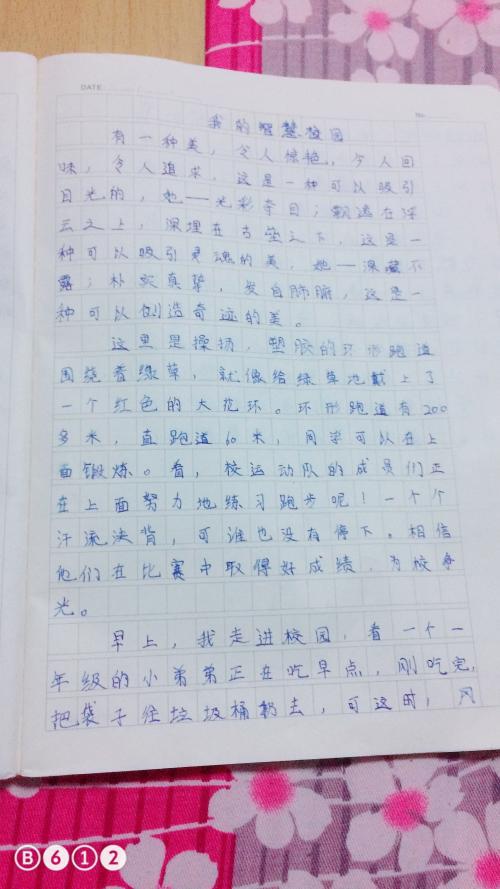 DATE
No.
我的智慧校园
有一种美，令人惊艳，令人回
味，令人追求，这是一种可以吸引
目光的，她——光彩夺目；飘逸在浮
云之上，深埋在古垒之下，这是一
种可以吸引灵魂的美，她——深藏不
露；朴实真挚，发自肺腑，这是一
种可以创造奇迹的美。
这里是操场，塑胶的环形跑道
围绕着绿草，就像给绿草地戴上了
一个红色的大花环。环形跑道有200
多米，直跑道60米，同学可以在上
面锻炼。看，校运动队的成员们正
在上面努力地练习跑步呢！一个个
汗流浃背，可谁也没有停下。相信
他们在比赛中取得好成绩，为校争
光。
早上，我走进校园，看一个一
年级的小弟弟正在吃早点，刚吃完，
把袋子往垃圾桶扔去，可这时，风
B612